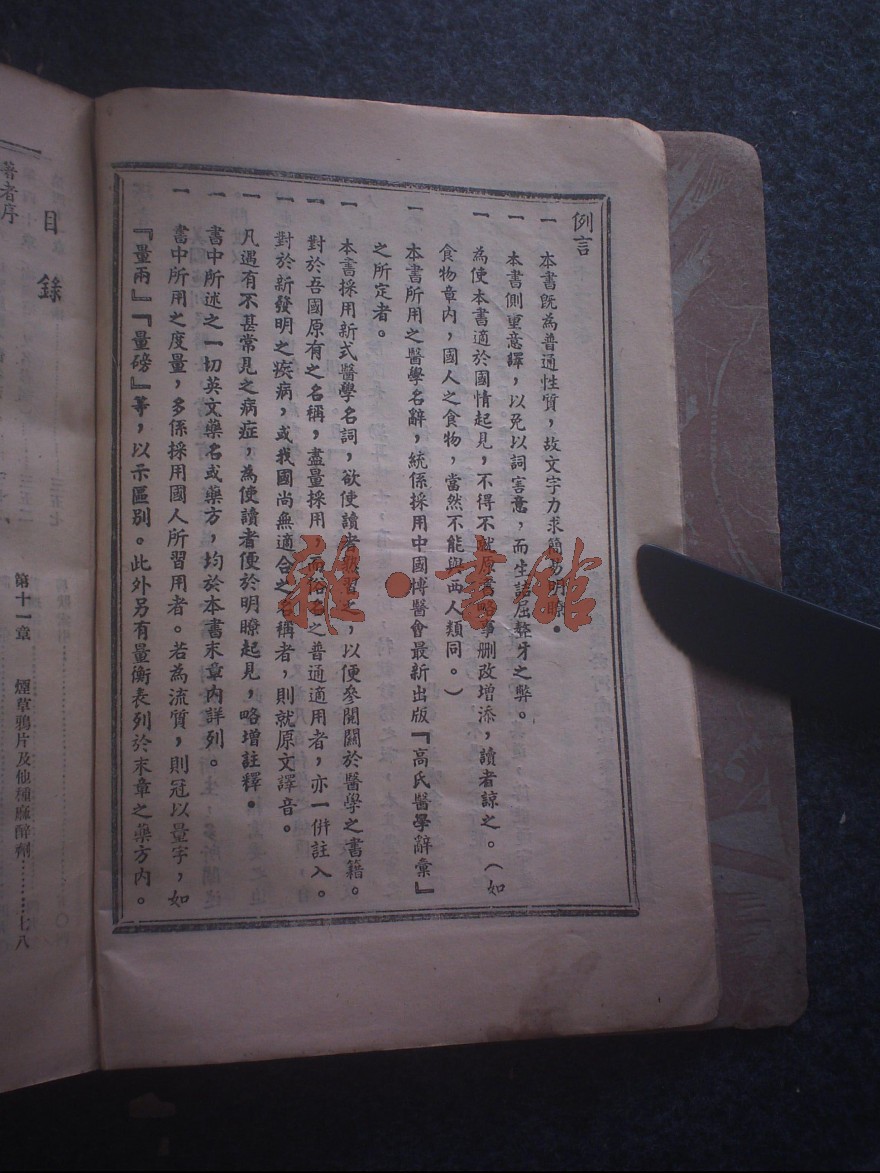 例言
一 本書既為普通性質，故文字力求簡易明瞭。
一 本書側重意繹，以免以詞害意，而生詰屈聱牙之弊。
一 為使本書適於國情起見，不得不就原書略事刪改增添，讀者諒之。（如
食物章内，國人之食物，當然不能與西人類同。）
一 本書所用之醫學名辭，統係採用中國博醫會最新出版『高氏醫學辭彙』
之所定者。
一 本書採用新式醫學名詞，欲使讀者，以便參閱關於醫學之書籍。
一 對於吾國原有之名稱，盡量採用，而俗名之普通適用者，亦一併註入。
一 對於新發明之疾病，或我國尚無適合之名稱者，則就原文譯音。
一 凡遇有不甚常見之病症，為使讀者便於明瞭起見，略增註釋。
一 書中所述之一切英文藥名或藥方，均於本書末章内詳列。
一 書中所用之度量，多係採用國人所習用者。若為流質，則冠以量字，如
『量兩』『量磅』等，以示區別。此外另有量衡表列於末章之藥方内。
目錄
著者序
第十一章 煙草鴉片及他種麻醉劑………七八
雜·書館